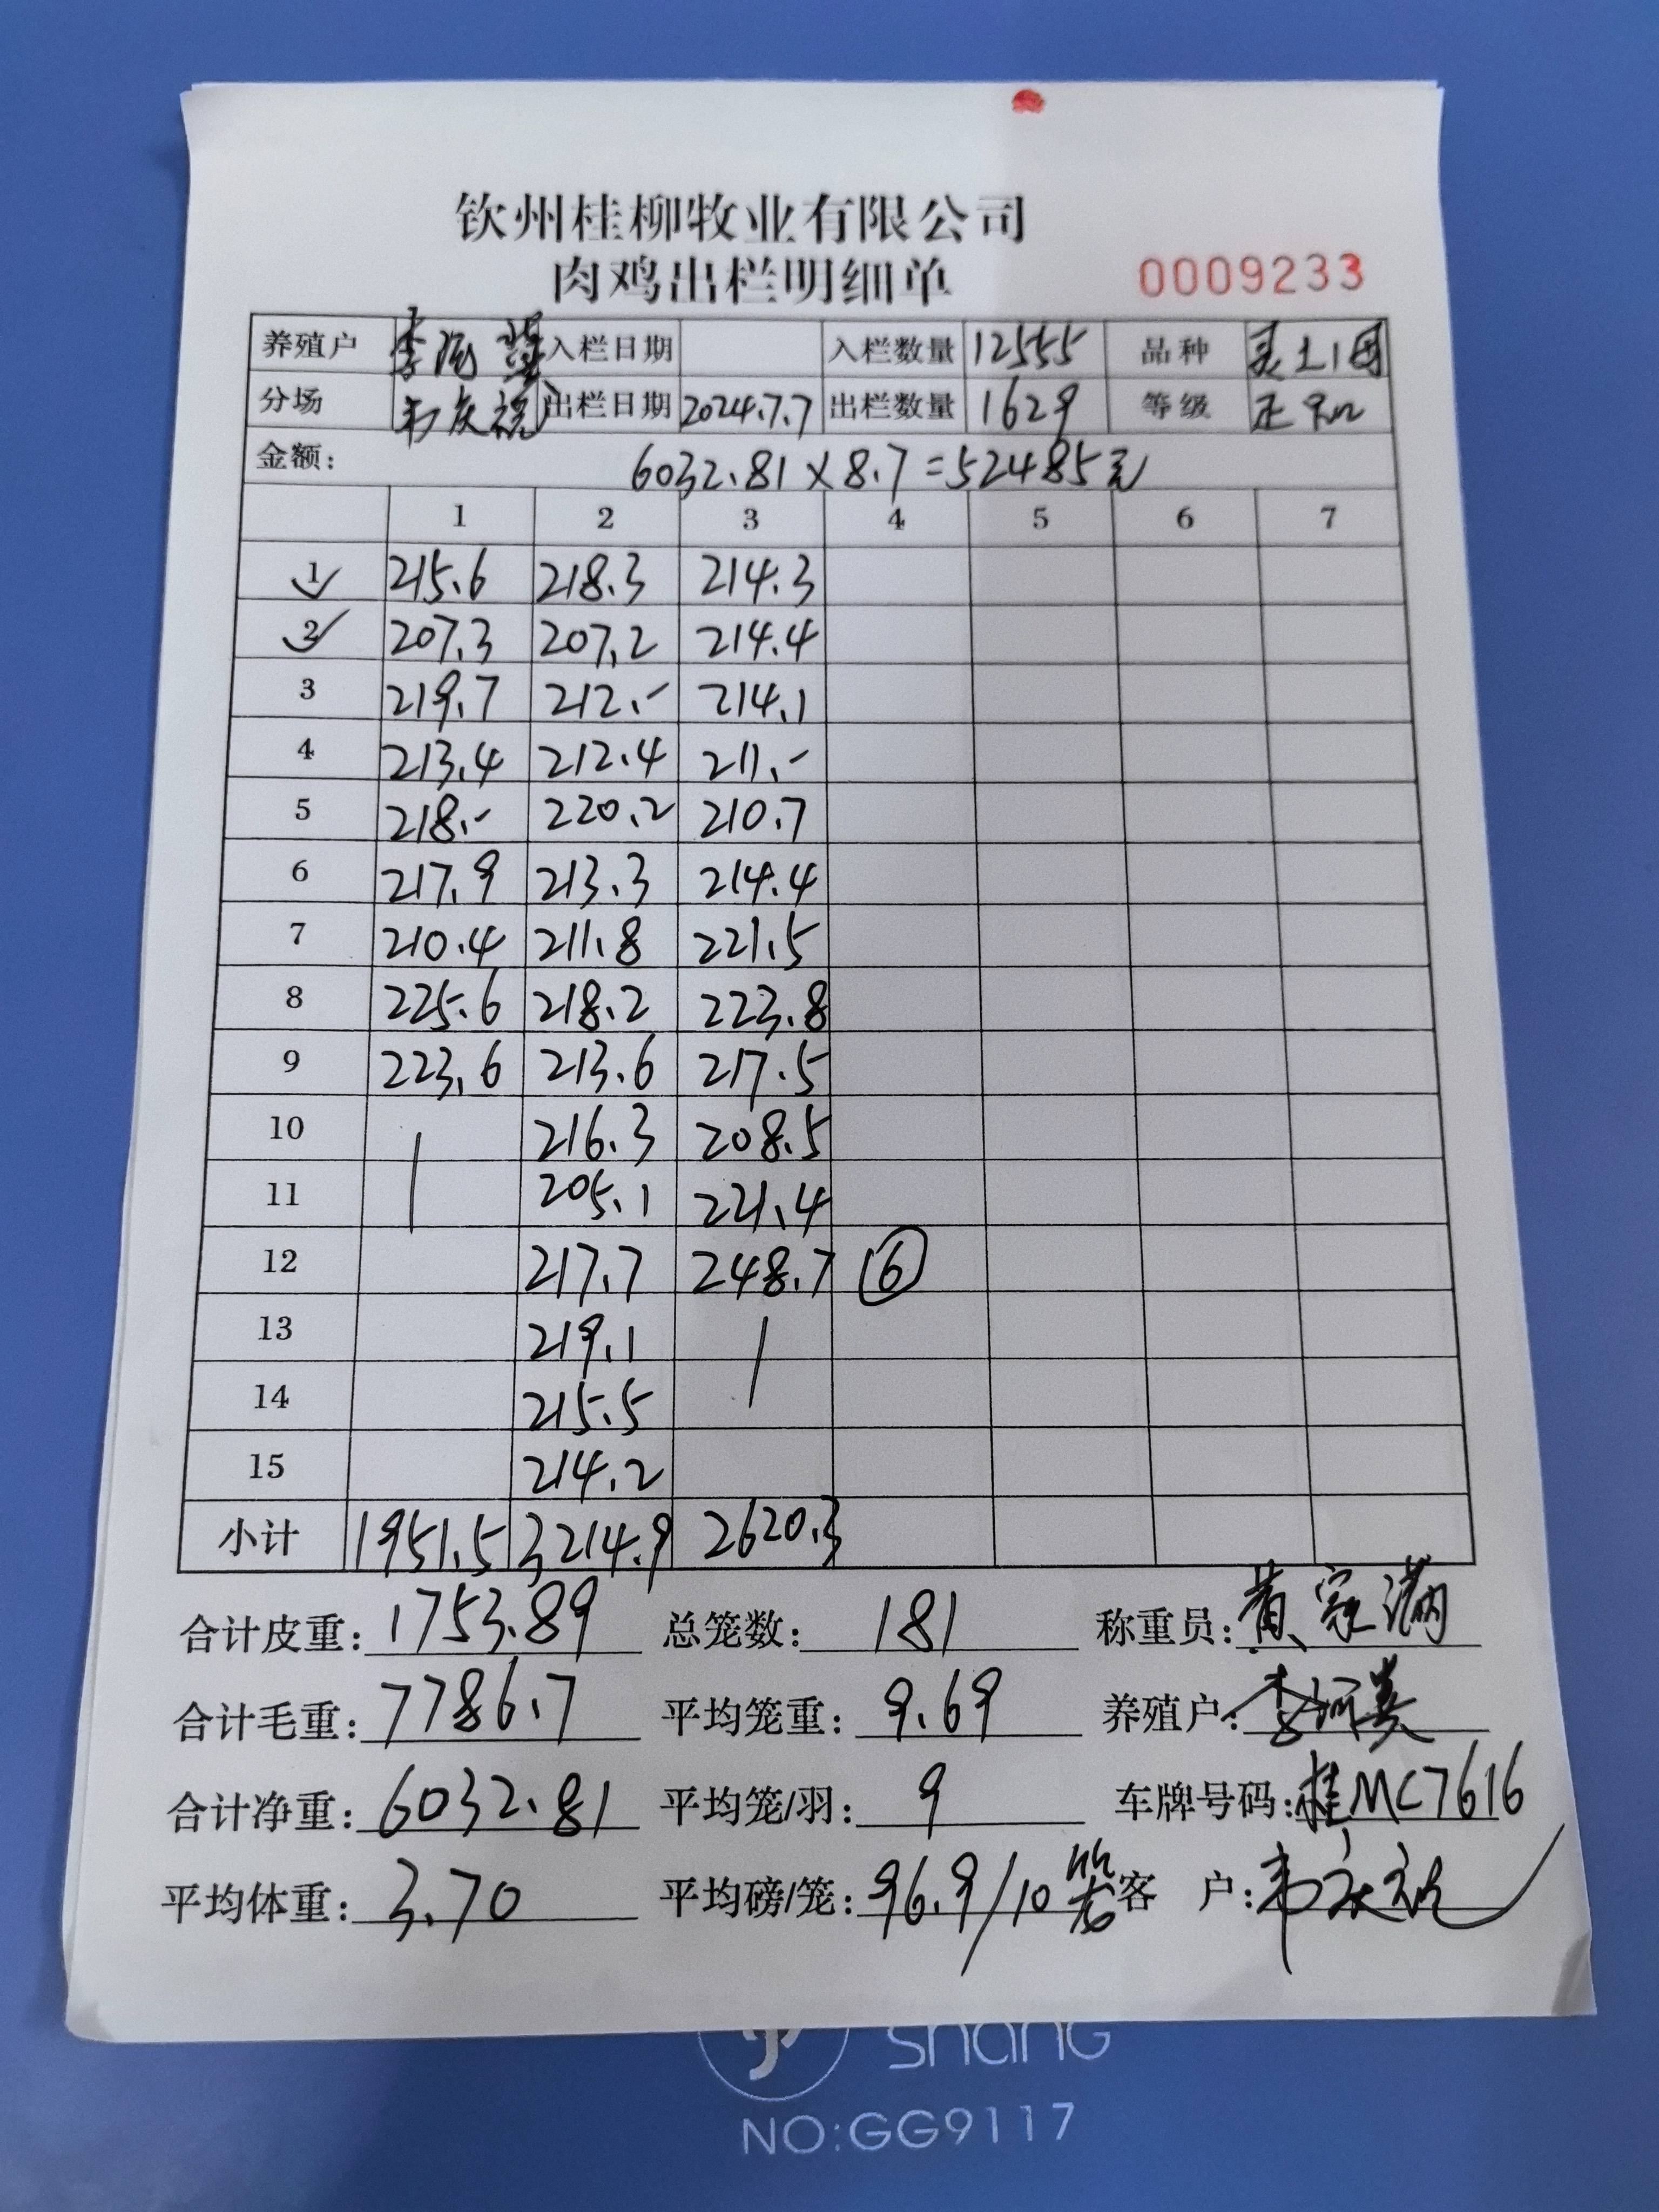 钦州桂柳牧业有限公司
肉鸡出栏明细单 0009233
养殖户 李 入栏日期 入栏数量 12555 品种 土1
分场 韦庆 出栏日期 2024.7.7 出栏数量 1629 等级 正
金额: 6032.81×8.7=52485元
1 2 3 4 5 6 7
1 215.6 218.3 214.3
2 207.3 207.2 214.4
3 219.7 212.- 214.1
4 213.4 212.4 211.-
5 218.- 220.2 210.7
6 217.9 213.3 214.4
7 210.4 211.8 221.5
8 225.6 218.2 223.8
9 223.6 213.6 217.5
10 216.3 208.5
11 205.1 221.4
12 217.7 248.7 ⑥
13 219.1
14 215.5
15 214.2
小计 1951.5 3214.9 2620.3
合计皮重: 1753.89 总笼数: 181 称重员: 黄家满
合计毛重: 7786.7 平均笼重: 9.69 养殖户: 李
合计净重: 6032.81 平均笼/羽: 9 车牌号码: 桂MC7616
平均体重: 3.70 平均磅/笼: 96.9/10笼 客 户: 韦庆
shang
NO:GG9117